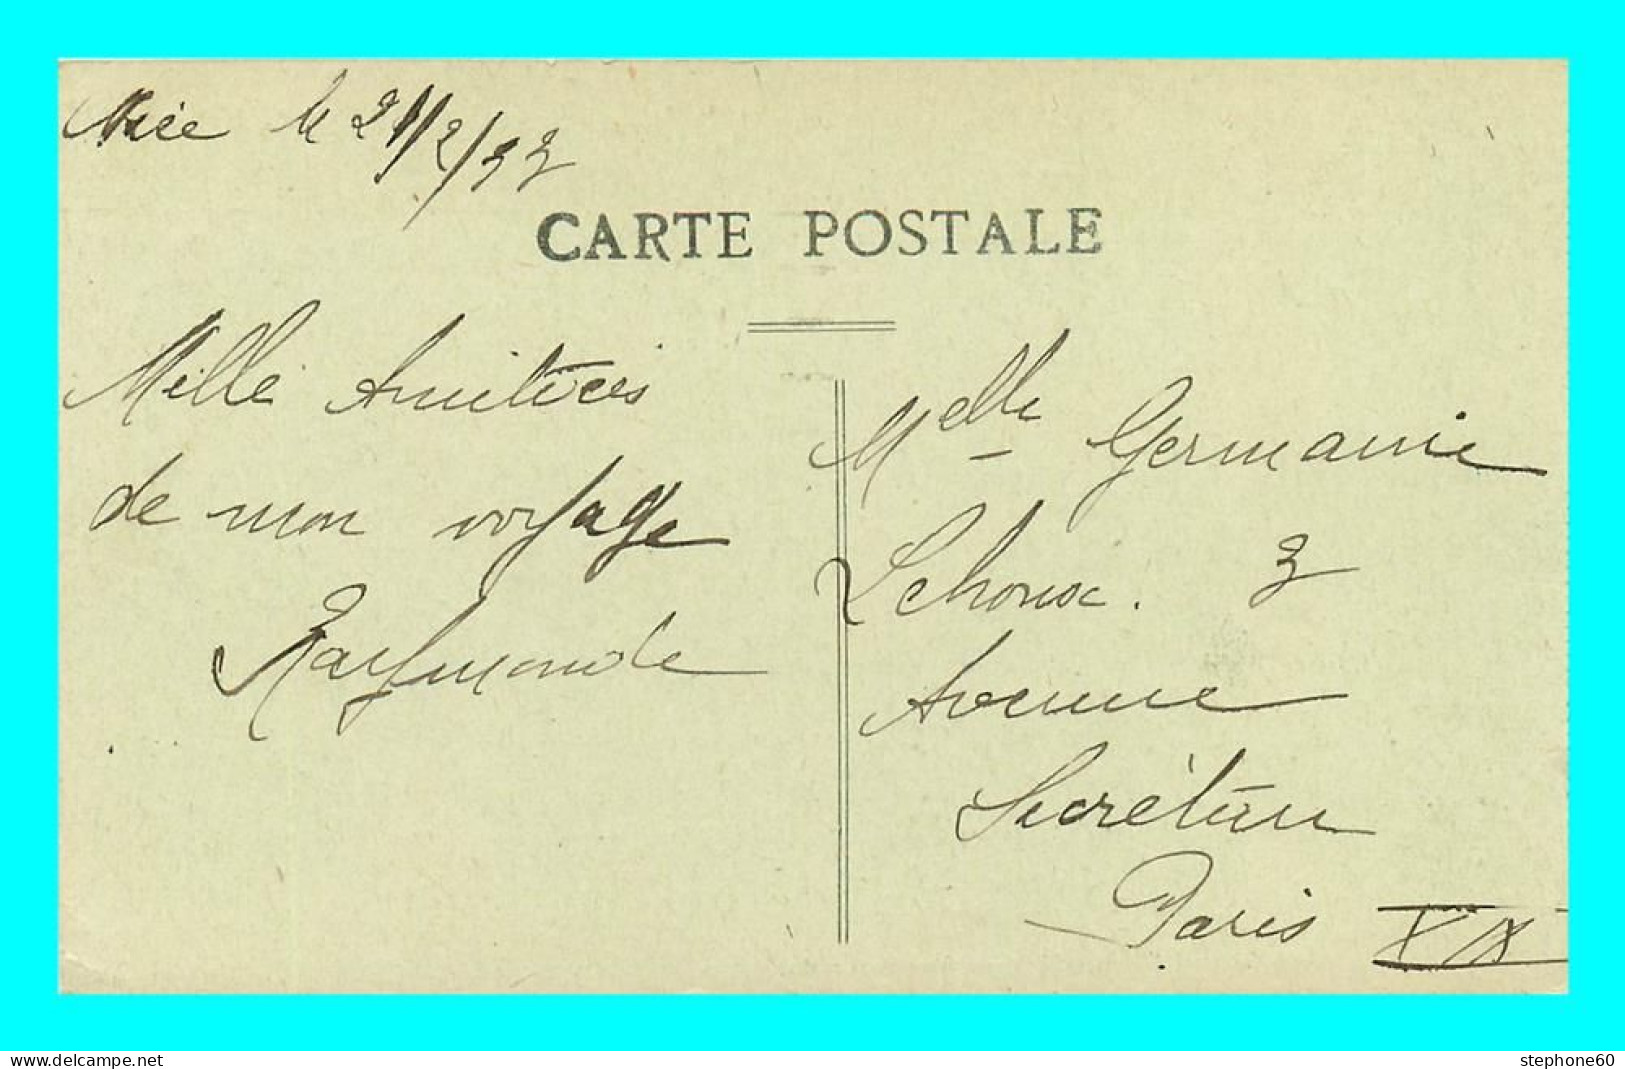 Nice le 21/2/33
CARTE POSTALE
Mille Amitiées
de mon voyage
Raymonde
Melle Germaine
Lehoux. 3
Avenue
Secrétan
Paris XIX
delcampe.net
stephone60